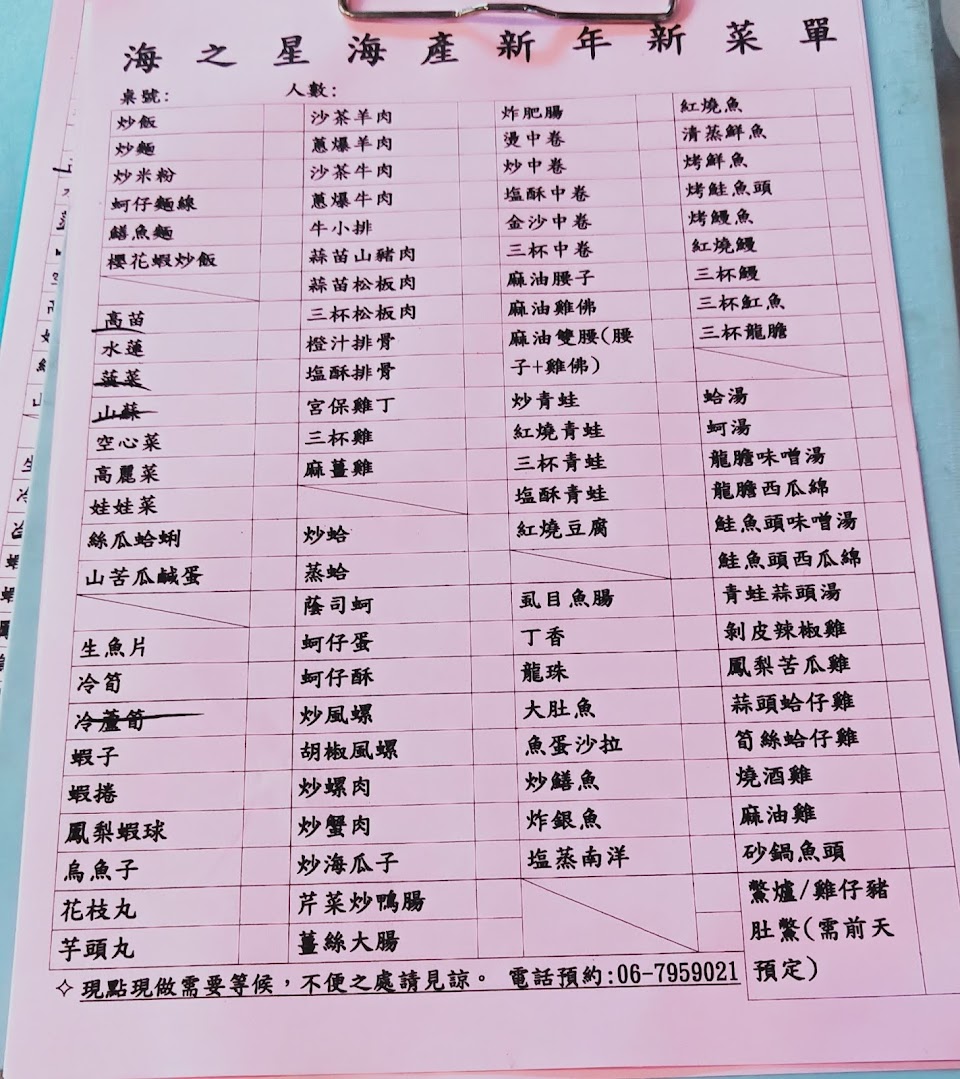 海之星海產新年新菜單
桌號: 人數:
炒飯
炒麵
炒米粉
蚵仔麵線
鱔魚麵
櫻花蝦炒飯
高苗
水蓮
菠菜
山蘇
空心菜
高麗菜
娃娃菜
絲瓜蛤蜊
山苦瓜鹹蛋
生魚片
冷筍
冷蘆筍
蝦子
蝦捲
鳳梨蝦球
烏魚子
花枝丸
芋頭丸
沙茶羊肉
蔥爆羊肉
沙茶牛肉
蔥爆牛肉
牛小排
蒜苗山豬肉
蒜苗松板肉
三杯松板肉
橙汁排骨
塩酥排骨
宮保雞丁
三杯雞
麻薑雞
炒蛤
蒸蛤
蔭司蚵
蚵仔蛋
蚵仔酥
炒風螺
胡椒風螺
炒螺肉
炒蟹肉
炒海瓜子
芹菜炒鴨腸
薑絲大腸
炸肥腸
燙中卷
炒中卷
塩酥中卷
金沙中卷
三杯中卷
麻油腰子
麻油雞佛
麻油雙腰(腰
子+雞佛)
炒青蛙
紅燒青蛙
三杯青蛙
塩酥青蛙
紅燒豆腐
虱目魚腸
丁香
龍珠
大肚魚
魚蛋沙拉
炒鱔魚
炸銀魚
塩蒸南洋
紅燒魚
清蒸鮮魚
烤鮮魚
烤鮭魚頭
烤鰻魚
紅燒鰻
三杯鰻
三杯魟魚
三杯龍膽
蛤湯
蚵湯
龍膽味噌湯
龍膽西瓜綿
鮭魚頭味噌湯
鮭魚頭西瓜綿
青蛙蒜頭湯
剝皮辣椒雞
鳳梨苦瓜雞
蒜頭蛤仔雞
筍絲蛤仔雞
燒酒雞
麻油雞
砂鍋魚頭
鱉爐/雞仔豬
肚鱉(需前天
預定)
✧ 現點現做需要等候，不便之處請見諒。 電話預約:06-7959021